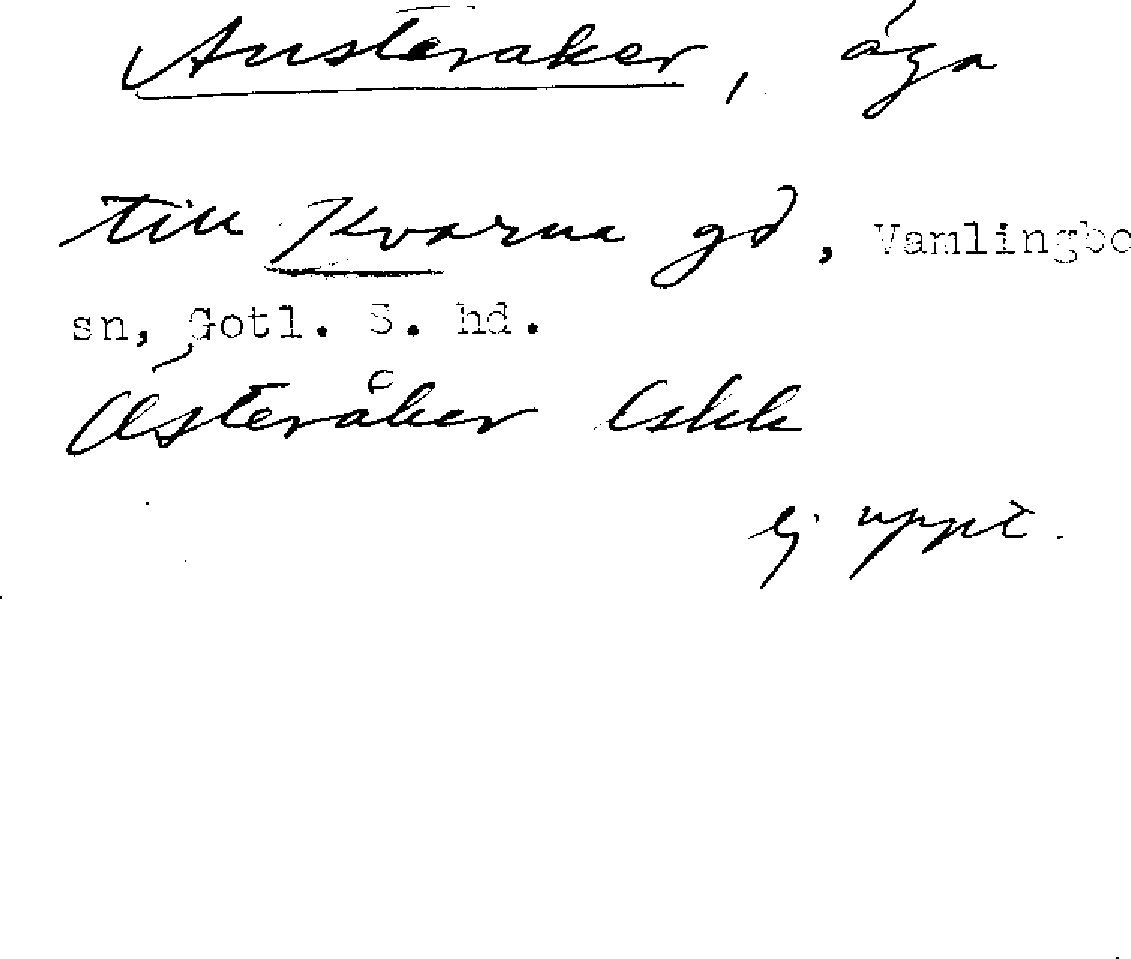 Austeraker, äga
till Kvarna gd, Vamlingbo
sn, Gotl. S. hd.
Österåker Eskk
ej uppt.